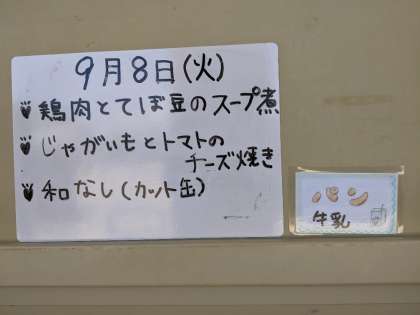 9月8日(火)
鶏肉とてぼ豆のスープ煮
じゃがいもとトマトの
チーズ焼き
和なし(カット缶)
パン
牛乳